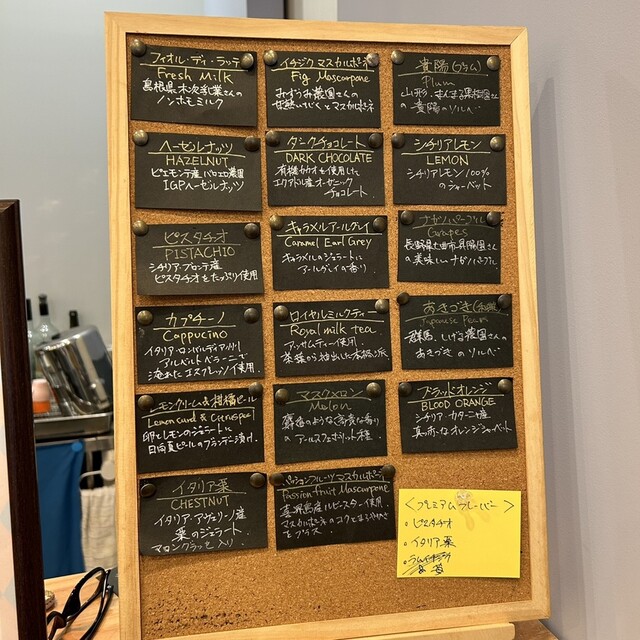 フィオル・ディ・ラッテ
Fresh Milk
島根県木次乳業さんの
ノンホモミルク
イチジク マスカルポーネ
Fig Mascarpone
農園さんの
甘熟いちじくとマスカルポーネ
貴陽(プラム)
Plum
山形、果樹園さんの
貴陽のソルベ
ヘーゼルナッツ
HAZELNUT
ピエモンテ産 農園
IGPヘーゼルナッツ
ダークチョコレート
DARK CHOCOLATE
有機カカオを使用した
エクアドル産オーガニック
チョコレート
シチリアレモン
LEMON
シチリアレモン100%
のシャーベット
ピスタチオ
PISTACHIO
シチリア・ブロンテ産
ピスタチオをたっぷり使用
キャラメルアールグレイ
Caramel Earl Grey
キャラメルのジェラートに
アールグレイの香り
ナガノパープル
Grapes
長野県上田市 農園さん
の美味しいナガノパープル
カプチーノ
Cappucino
イタリア・ロンバルディア州
アルベルト ベラーニで
淹れたエスプレッソ使用
ロイヤルミルクティー
Royal milk tea
アッサムティー使用
茶葉から抽出した本格派
あきづき(和梨)
Japanese Pears
群馬、しげる農園さんの
あきづき の ソルベ
レモンクリーム&柑橘ピール
Lemon curd & Citrus peel
卵とレモンのジェラートに
日向夏ピールのブランデー漬け
マスクメロン
Melon
麝香のような高貴な香り
のアールスフェボリット種
ブラッドオレンジ
BLOOD ORANGE
シチリア・カターニア産
真っ赤なオレンジシャーベット
イタリア栗
CHESTNUT
イタリア・アヴェリーノ産
栗のジェラート
マロングラッセ入り
パッションフルーツ マスカルポーネ
Passion fruit Mascarpone
喜界島産ルビースター使用
マスカルポーネのコクと
をプラス
<プレミアムフレーバー>
・ピスタチオ
・イタリア栗